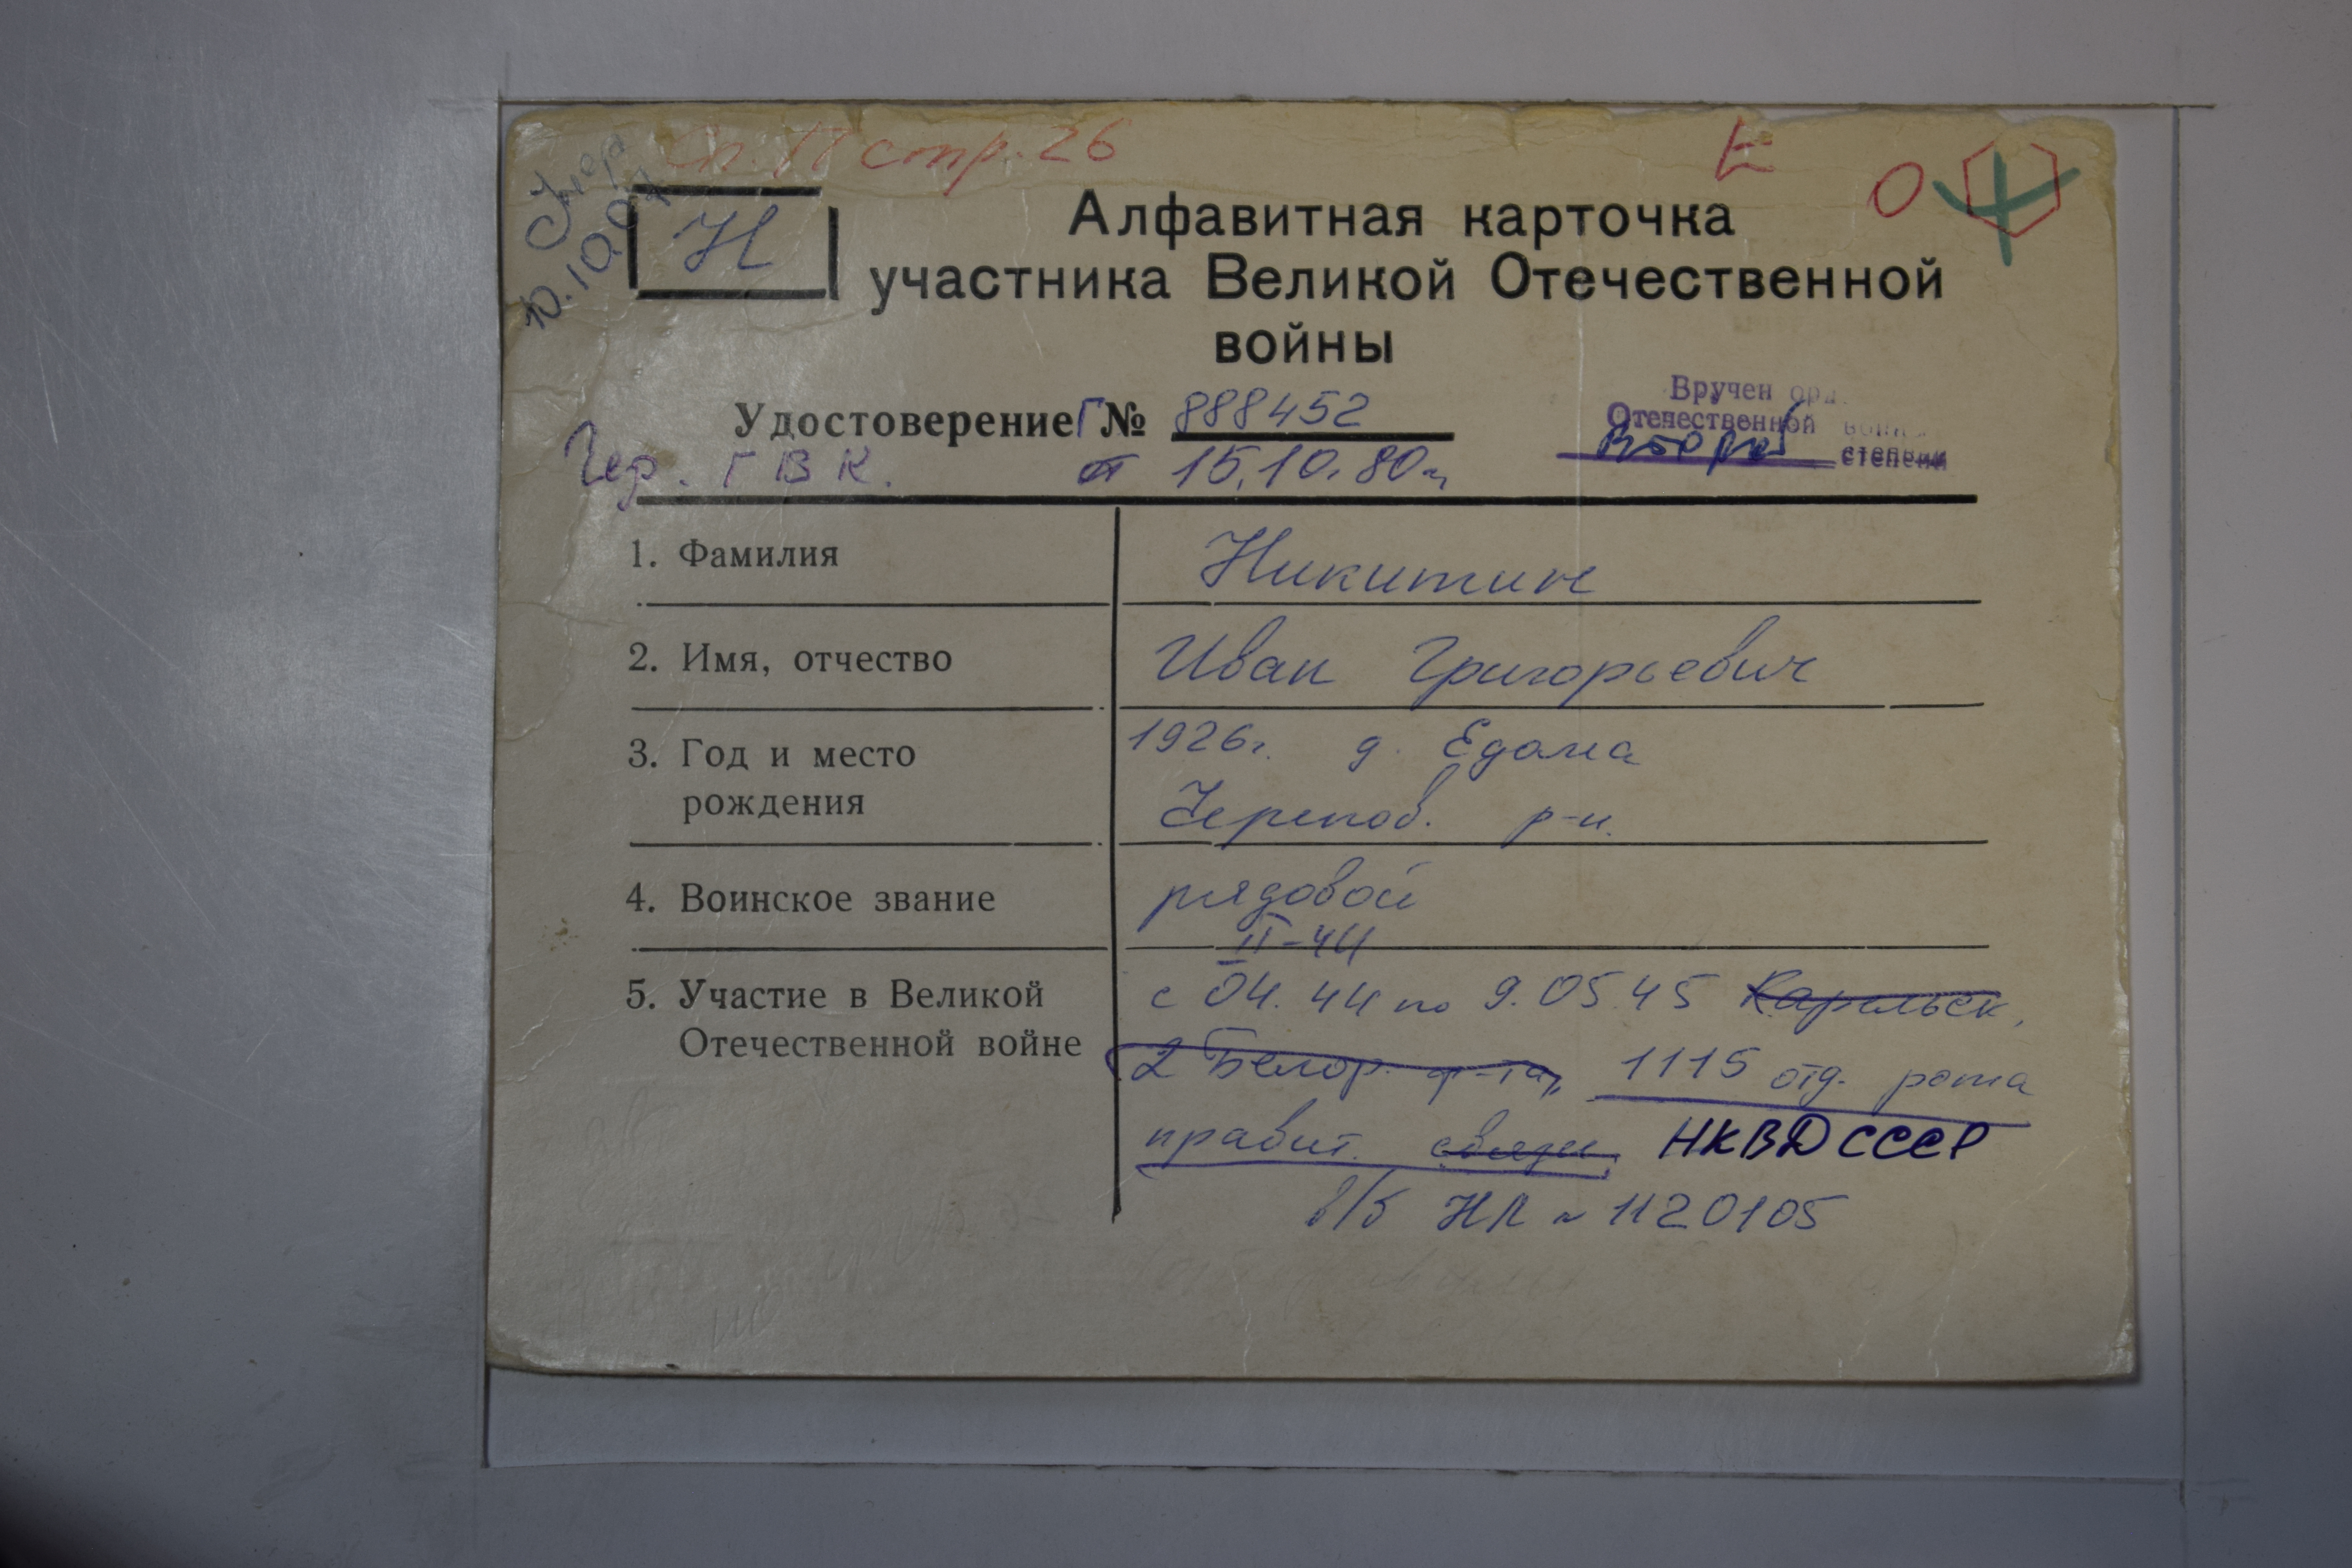 стр. 26
Е
О
Умер
10.10.0
Н
Алфавитная карточка
участника Великой Отечественной
войны
Удостоверение Г № 888452
Чер. ГВК. от 15.10.80г.
Вручен орд.
Отечественной войны
второй степени
1. Фамилия Никитин
2. Имя, отчество Иван Григорьевич
3. Год и место рождения 1926г. д. Едома
Черепов. р-н.
4. Воинское звание рядовой
II-44
5. Участие в Великой Отечественной войне с 04.44 по 9.05.45 Карельск,
2 Белор. ф-та, 1115 отд. рота
правит. связи, НКВД СССР
в/б НЛ № 1120105